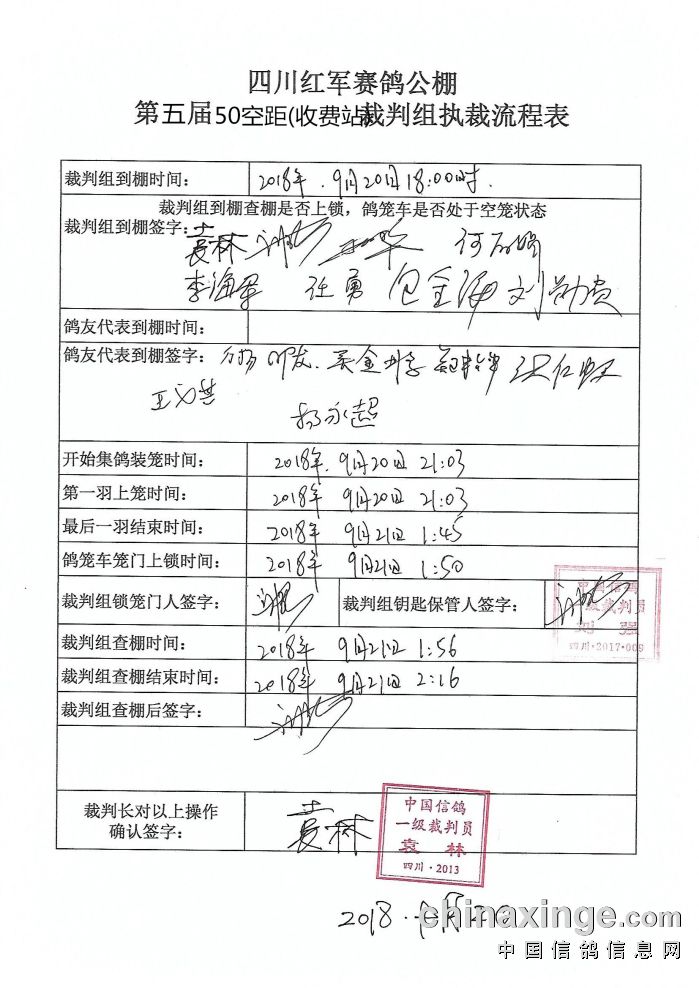 四川红军赛鸽公棚
第五届50空距(收费站)裁判组执裁流程表
裁判组到棚时间： 2018年.9月20日18:00时.
裁判组到棚查棚是否上锁，鸽笼车是否处于空笼状态
裁判组到棚签字： 袁林
李海军 任勇 包金海 刘勋贵
鸽友代表到棚时间：
鸽友代表到棚签字：
杨永超
开始集鸽装笼时间： 2018年.9月20日 21:03
第一羽上笼时间： 2018年 9月20日 21:03
最后一羽结束时间： 2018年 9月21日 1:45
鸽笼车笼门上锁时间： 2018年 9月21日 1:50
裁判组锁笼门人签字： 裁判组钥匙保管人签字：
中国信鸽
一级裁判员
刘强
四川·2017·009
裁判组查棚时间： 2018年 9月21日 1:56
裁判组查棚结束时间： 2018年 9月21日 2:16
裁判组查棚后签字：
裁判长对以上操作
确认签字： 袁林
中国信鸽
一级裁判员
袁林
四川·2013
2018.
chinaxinge.com
中国信鸽信息网